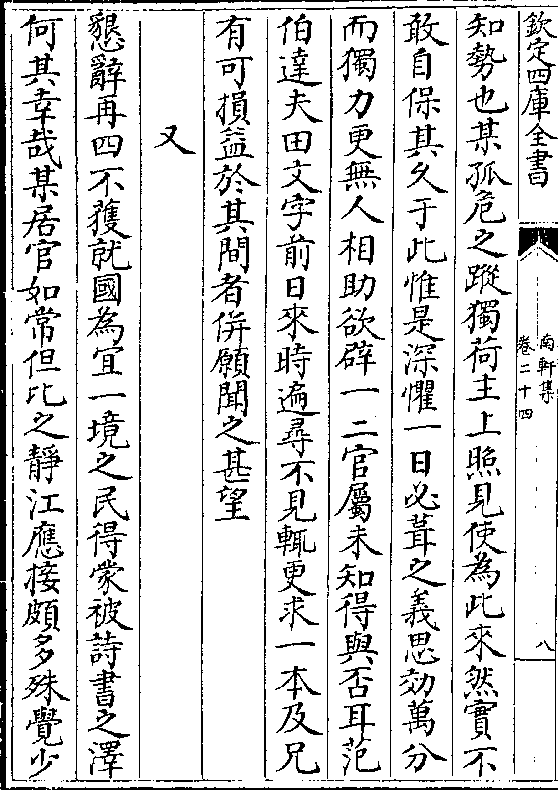 欽定四庫全書
南軒集
卷二十四
八
知勢也某孤危之蹤獨荷主上照見使為此來然實不
敢自保其久于此惟是深懼一日必葺之義思効萬分
而獨力更無人相助欲辟一二官屬未知得與否耳范
伯達夫田文字前日來時遍尋不見輒更求一本及兄
有可損益於其間者併願聞之甚望
又
懇辭再四不獲就國為宜一境之民得蒙被詩書之澤
何其幸哉某居官如常但比之靜江應接頗多殊覺少